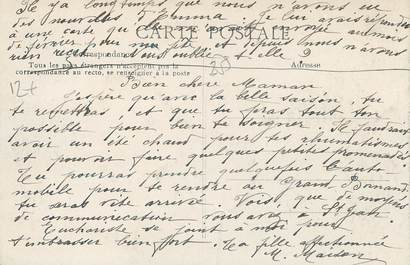 Il y a longtemps que nous n'avons eu
des nouvelles d'Emma. Je lui avais répondu
à une carte qu'elle m'avait envoyée au mois
CARTE POSTALE
de février pour ma fête et depuis nous n'avons
rien reçu. Nous oublie-t-elle ?
Correspondance
Adresse
Tous les pays étrangers n'acceptent pas la
correspondance au recto, se renseigner à la poste
Bien chère Maman
J'espère qu'avec la belle saison, tu
te remettras, et que tu feras tout ton
possible pour bien te soigner. Il faudrait
avoir un été chaud pour tes rhumatismes
et pouvoir faire quelques petites promenades
Tu pourras prendre quelquefois l'auto
mobile pour te rendre au Grand Bornand
tu seras vite arrivée. Vois, que de moyens
de communication vous avez à St Jean
Eucharistie de
à moi pour
t'embrasser bien fort. Ta fille affectionnée
M.